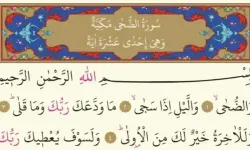 سُورَةُ الضُّحٰى مَكِّيَّةٌ
وَهِيَ اِحْدٰى عَشْرَةَ اٰيَةً
بِسْــــمِ اللهِ الرَّحْمٰنِ الرَّحِيمِ
الضُّحٰىۙ ۝ وَالَّيْلِ اِذَا سَجٰىۙ ۝ مَا وَدَّعَكَ رَبُّكَ وَمَا قَلٰىۜ
لَلْاٰخِرَةُ خَيْرٌ لَكَ مِنَ الْاُو۫لٰىۜ ۝ وَلَسَوْفَ يُعْطِيكَ رَبُّكَ